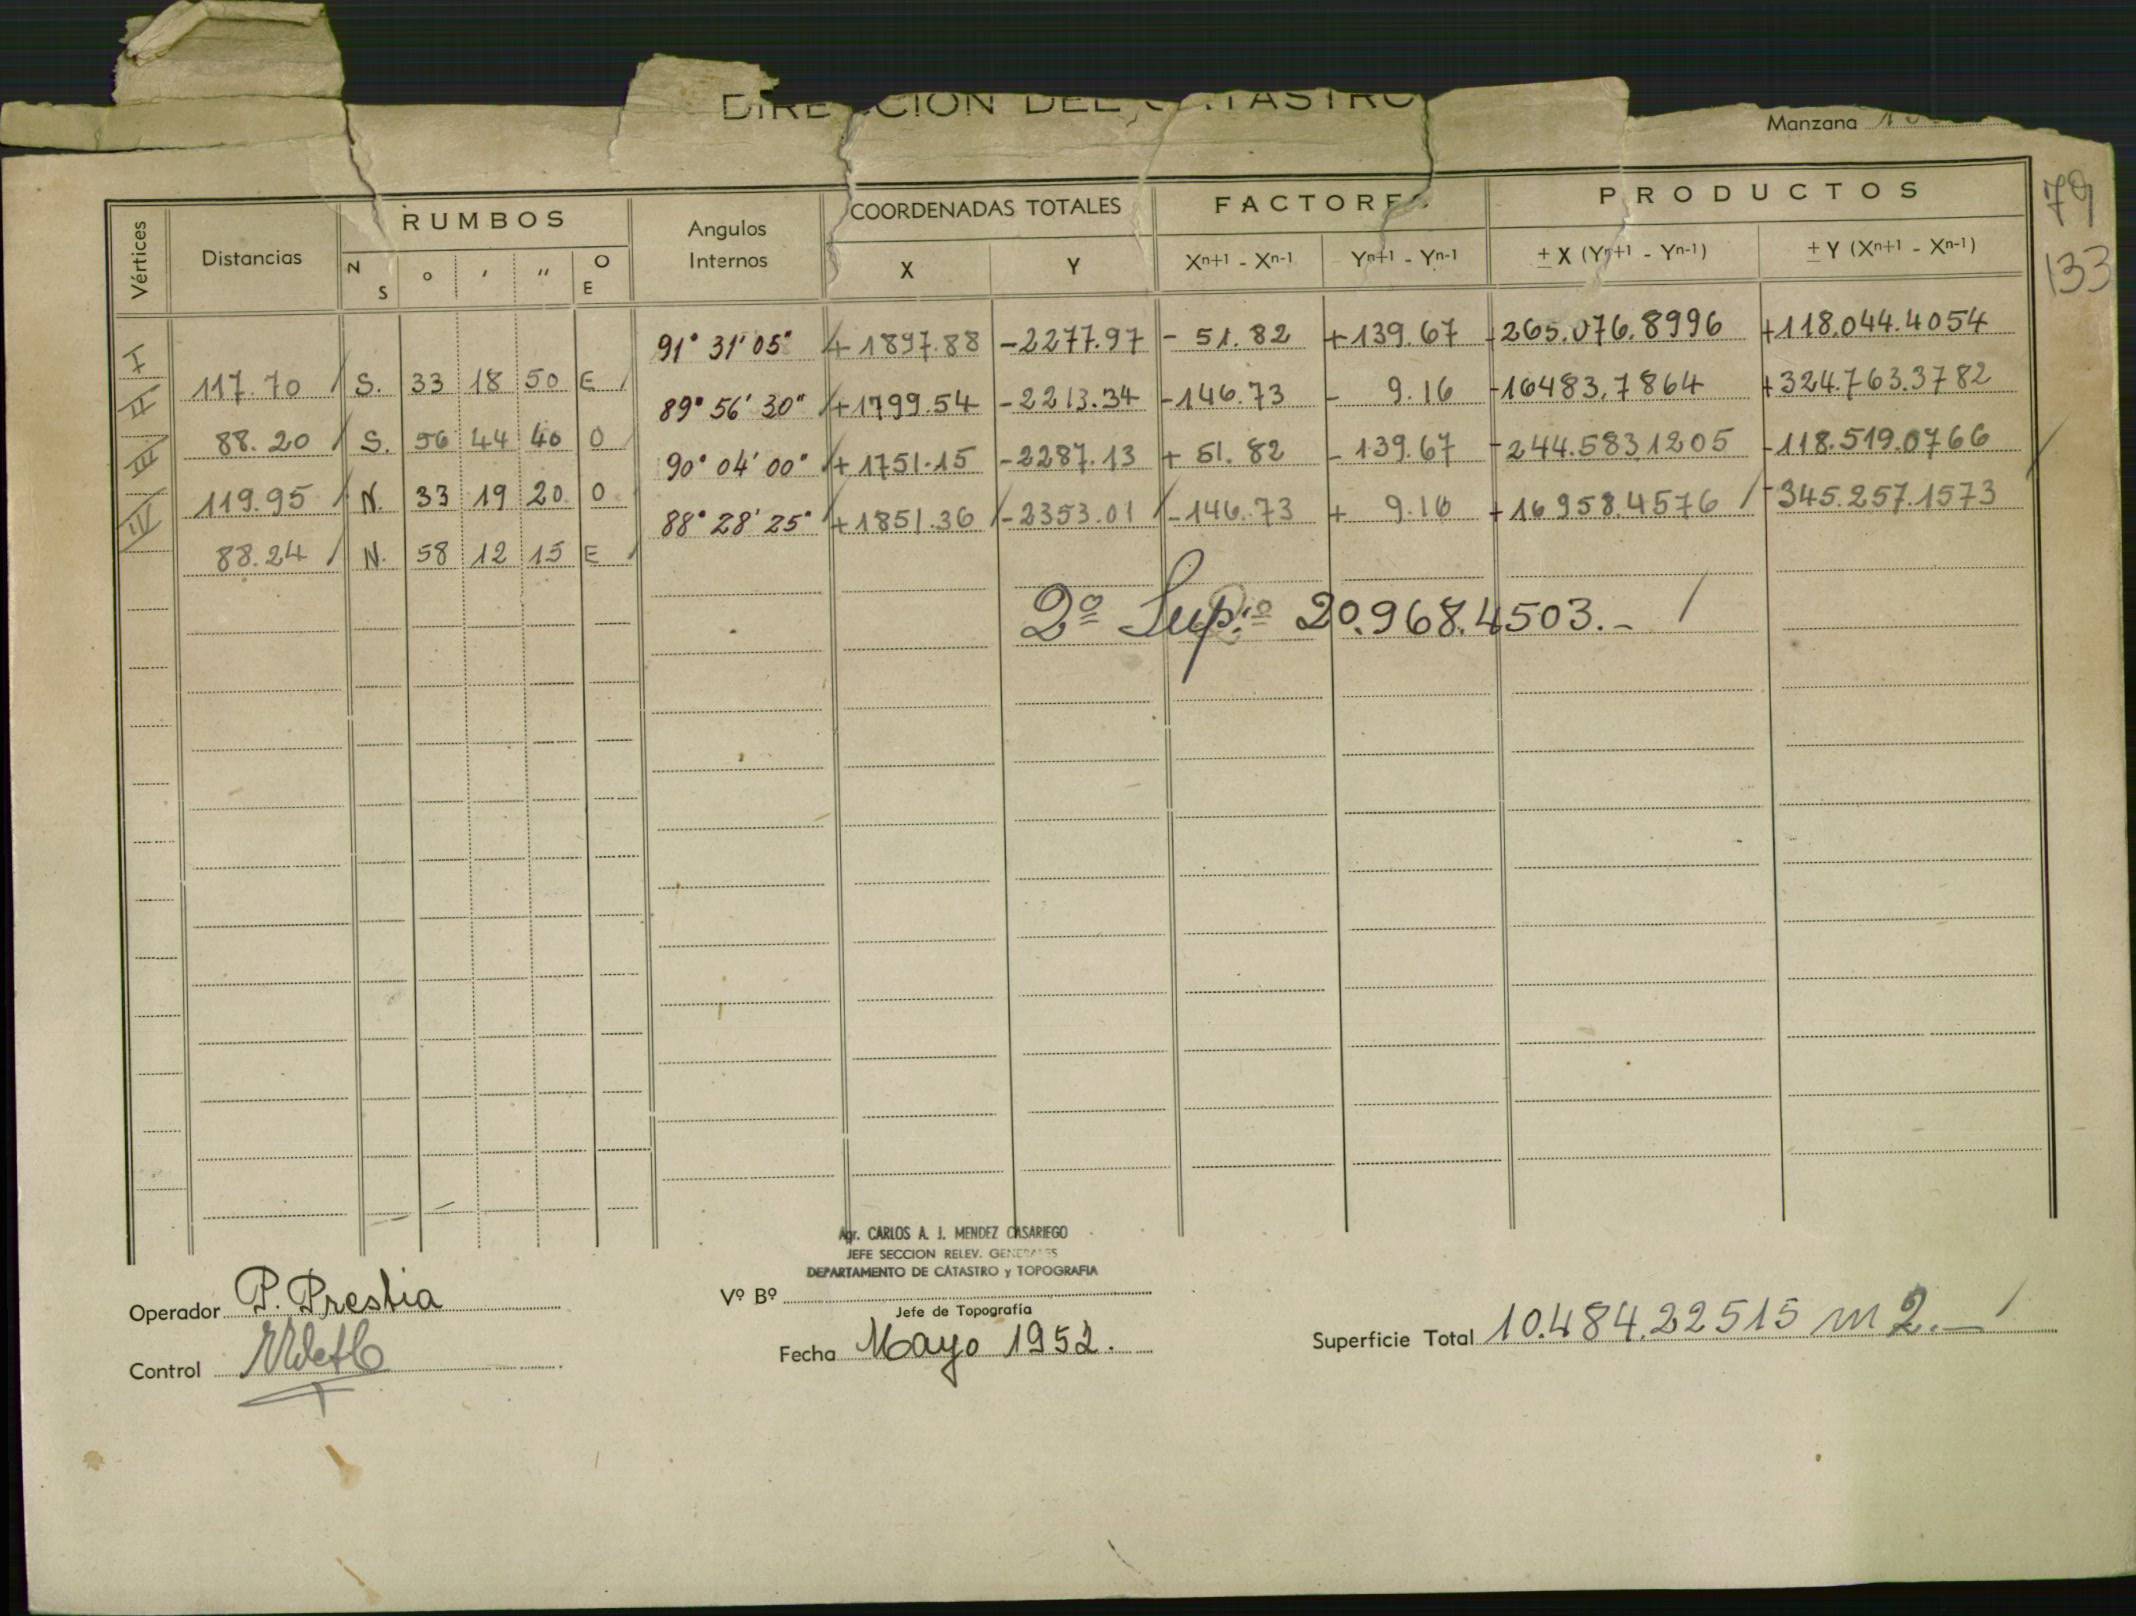 DIRECCION DEL CATASTRO
Manzana
79
133
Vértices
Distancias
RUMBOS
N S
° ' "
O E
Angulos Internos
COORDENADAS TOTALES
X Y
FACTORES
Xn+1 - Xn-1 Yn+1 - Yn-1
PRODUCTOS
± X (Yn+1 - Yn-1) ± Y (Xn+1 - Xn-1)
I 91° 31' 05" + 1897.88 -2277.97 - 51.82 +139.67 +265.076.8996 +118.044.4054
117.70 S. 33 18 50 E
II 89° 56' 30" +1799.54 -2213.34 -146.73 - 9.16 -16483.7864 +324.763.3782
88.20 S. 56 44 40 O
III 90° 04' 00" + 1751.15 -2287.13 + 51.82 - 139.67 -244.583.1205 -118.519.0766
119.95 N. 33 19 20 O
IV 88° 28' 25" +1851.36 -2353.01 -146.73 + 9.16 +16958.4576 -345.257.1573
88.24 N. 58 12 15 E
2ª Sup:º 20.968.4503.-
Agr. CARLOS A. J. MENDEZ CASARIEGO
JEFE SECCION RELEV. GENERALES
DEPARTAMENTO DE CATASTRO y TOPOGRAFIA
Operador P. Prestia
Vº Bº
Jefe de Topografía
Control
Fecha Mayo 1952.
Superficie Total 10.484.22515 m2.-